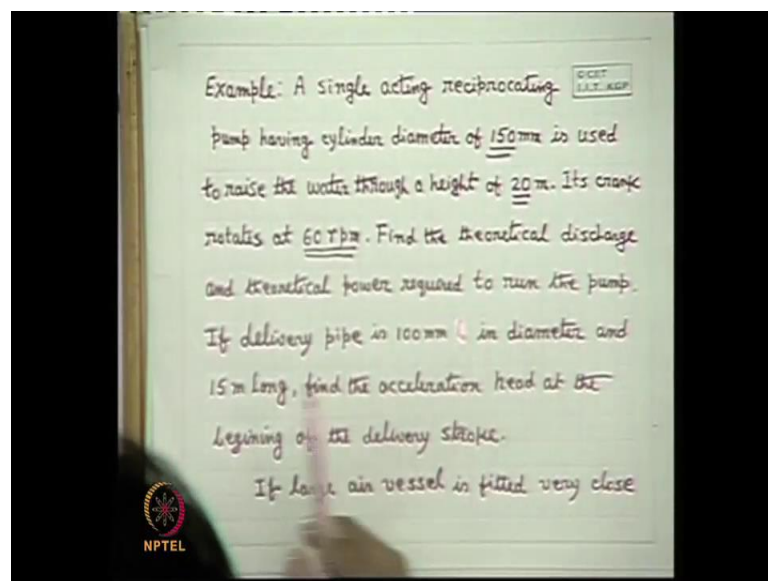 Example: A single acting reciprocating
©CET
I.I.T. KGP
pump having cylinder diameter of 150mm is used
to raise the water through a height of 20 m. Its crank
rotates at 60 rpm. Find the theoretical discharge
and theoretical power required to run the pump.
If delivery pipe is 100mm in diameter and
15 m long, find the acceleration head at the
begining of the delivery stroke.
If large air vessel is fitted very close
NPTEL